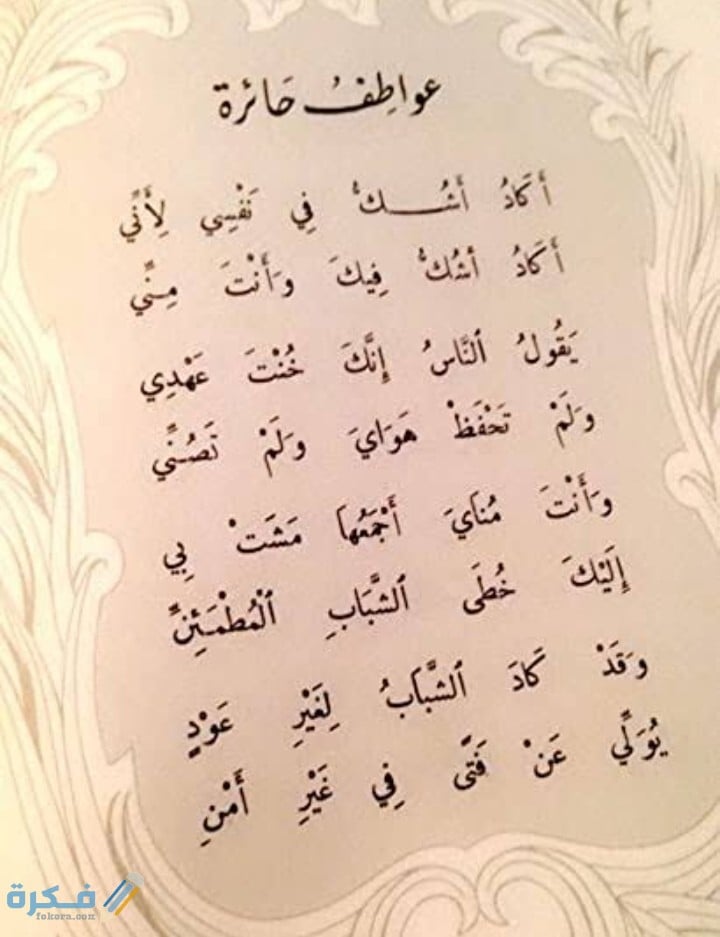 عواطِفُ حَائرة
أَكَادُ أَشُـــكُّ فِي نَفْسِي لِأَنِّي
أَكَادُ أشُكُّ فِيكَ وَأَنْتَ مِنِّي
يَقُولُ النَّاسُ إِنَّكَ خُنْتَ عَهْدِي
وَلَمْ تَحْفَظْ هَوَايَ وَلَمْ تَصُنِّي
وَأَنْتَ مُنَايَ أَجْمَعُهَا مَشَتْ بِي
إِلَيْكَ خُطَى الشَّبَابِ الْمُطْمَئِنِّ
وَقَدْ كَادَ الشَّبَابُ لِغَيْرِ عَوْدٍ
يُوَلِّي عَنْ فَتًى فِي غَيْرِ أَمْنِ
فـكـرة
fokera.com